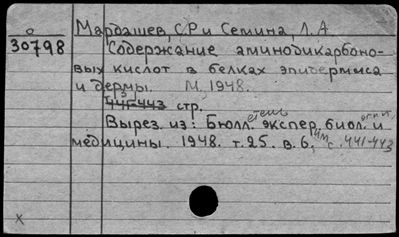 Мардашев, С.Р и Семина, Л.А
о
30798
Содержание аминодикарбоно-
вых кислот в белках эпидермиса
и дермы. М. 1948.
441-443 стр.
Вырез. из: Бюллетень экспер. биол. и
медицины. 1948. т.25. в.6, с. 441-443
х